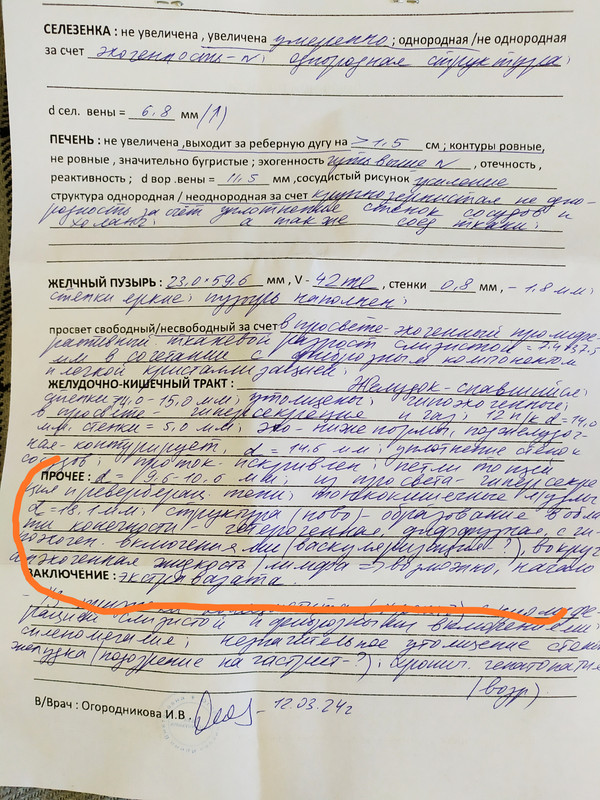 СЕЛЕЗЕНКА : не увеличена , увеличена умеренно ; однородная /не однородная
за счет эхогенность - N ; однородная структура ;
d сел. вены = 6,8 мм /(↑)
ПЕЧЕНЬ : не увеличена ,выходит за реберную дугу на ≥ 1,5 см ; контуры ровные,
не ровные , значительно бугристые ; эхогенность чуть выше N , отечность ,
реактивность ; d вор .вены = 11,5 мм ,сосудистый рисунок усиление
структура однородная / неоднородная за счет крупнозернистая не одно-
родность за счёт уплотнение стенок сосудов и
холанг. а также соед. ткани ;
ЖЕЛЧНЫЙ ПУЗЫРЬ : 23,0 × 59,6 мм , V - 42 ml , стенки 0,8 мм , - 1,8 мм ;
стенки яркие ; пузырь наполнен ;
просвет свободный/несвободный за счет в просвете - эхогенный пролифе-
ративный тканевой разрост слизистой =
мм в сочетании с фиброзным компонентом
и легкой кристаллизацией.
ЖЕЛУДОЧНО-КИШЕЧНЫЙ ТРАКТ : Желудок - спавшийся ;
стенки 14,0 - 15,0 мм ; утолщены ; гипоэхогенные ;
в просвете - гиперсекреция и газ ; 12 п/к d = 14,0
мм, стенки = 5,0 мм ; эхо - ниже нормы, поджелудоч-
ная - контурирует, d = 14,6 мм ; уплотнение стенок
сосудов ; проток - искривлен ; петли тощей
ПРОЧЕЕ : d = 9,6 - 10,0 мм ; из просвета - гиперсекре-
ция и реверберац. тени ; тонкокишечные л/узлы
d = 18,1 мм ; структура (ново) - образование в обла-
сти конечности - гетерогенная, диффузная, с ги-
поэхоген. включениями (васкуляризация - ?), вокруг
анэхогенная жидкость / лимфа => возможно, начало
ЗАКЛЮЧЕНИЕ : экстравазата.
слизистой и фиброзными включениями ;
спленомегалия ; незначительное утолщение стенок
желудка (подозрение на гастрит - ?) ; хронич. гепатопатия
(возр).
В/Врач : Огородникова И.В. 12.03.24г